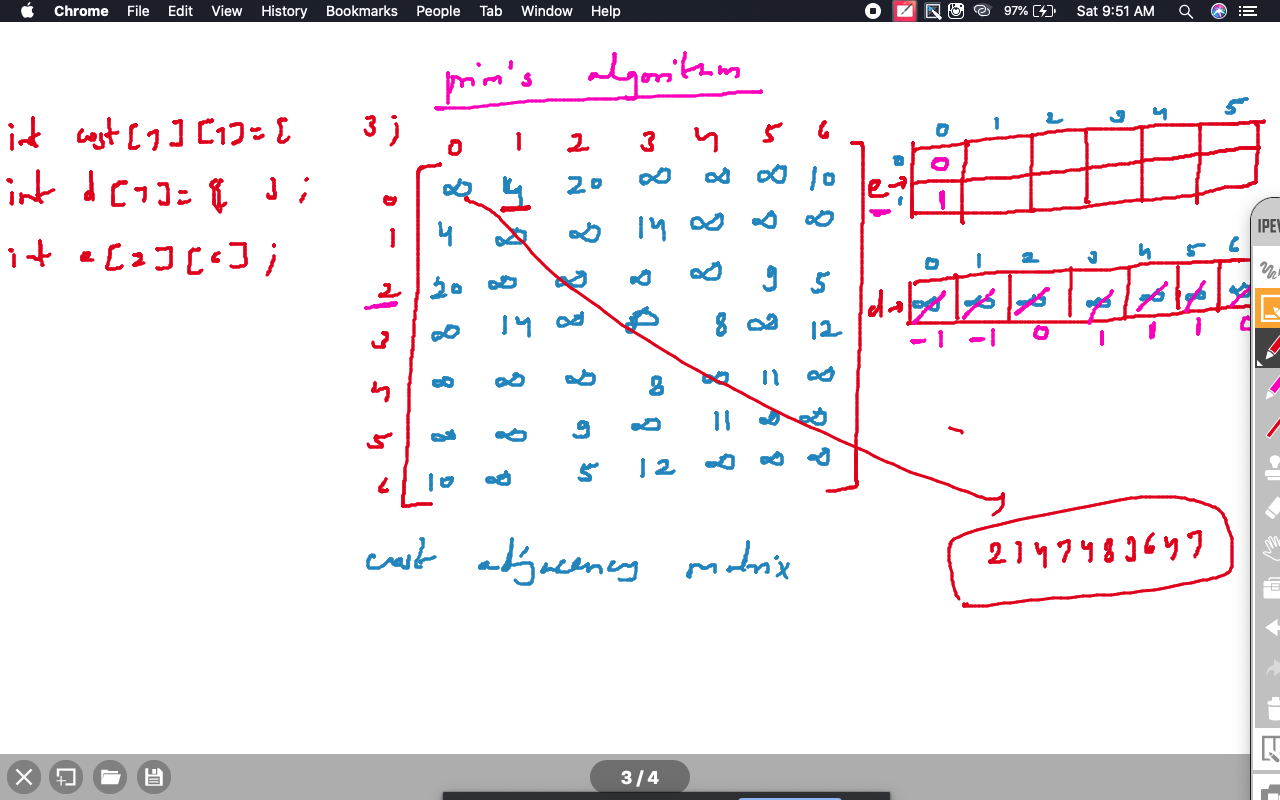 Chrome File Edit View History Bookmarks People Tab Window Help 97% Sat 9:51 AM
prim's algorithm
int cost[7][7]={ };
int d[7]={ };
int e[2][6];
0 1 2 3 4 5 6
0 ∞ 4 20 ∞ ∞ ∞ 10
1 4 ∞ ∞ 14 ∞ ∞ ∞
2 20 ∞ ∞ ∞ ∞ 9 5
3 ∞ 14 ∞ ∞ 8 ∞ 12
4 ∞ ∞ ∞ 8 ∞ 11 ∞
5 ∞ ∞ 9 ∞ 11 ∞ ∞
6 10 ∞ 5 12 ∞ ∞ ∞
cost adjacency matrix
0 1 2 3 4 5
e→ 0 0
1 1
0 1 2 3 4 5 6
d→ ∞ ∞ ∞ ∞ ∞ ∞ ∞
-1 -1 0 1 1 1 0
2147483647
IPEV
3 / 4